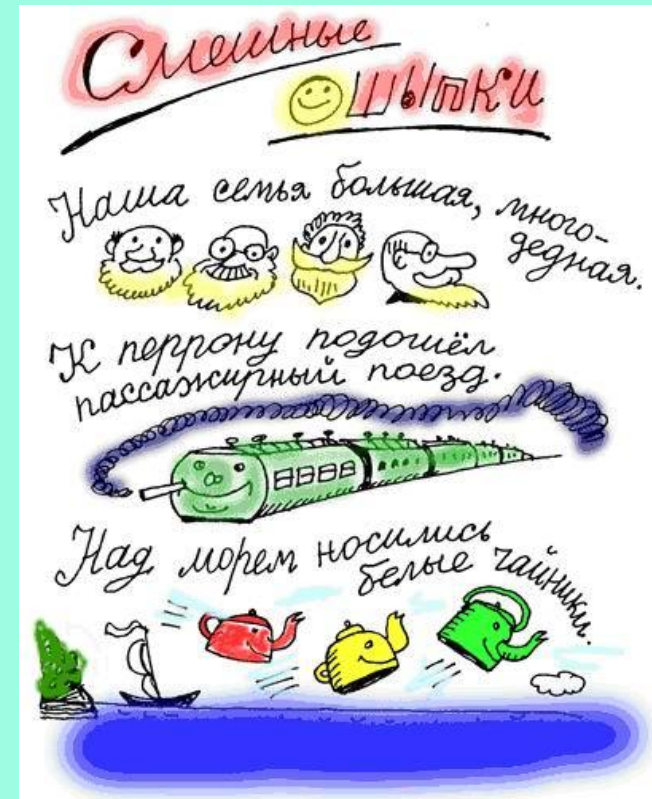 Смешные
ОШЫПКИ
Наша семья большая, много-
дедная.
К перрону подошёл
пассажирный поезд.
Над морем носились
белые чайники.